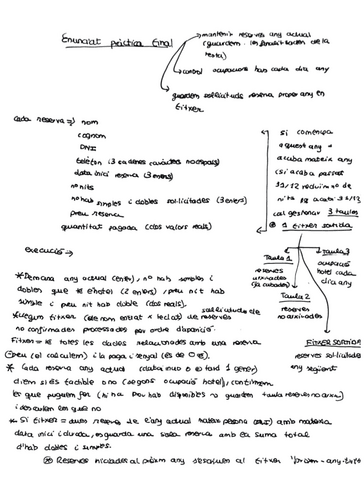 Enunciat pràctica final
→ mantenir reserves any actual
(guardem
resta)
→ control ocupacions hab cada dia any
guardem sol·licituds reserva proper any en
fitxer
cada reserva => nom
cognom
DNI
telèfon (3 cadenes caràcters no espais)
data inici reserva (3 enters)
nº nits
nº hab simples i dobles sol·licitades (3 enters)
preu reserva
quantitat pagada (dos valors reals)
si comença
aquest any →
acaba mateix any
(si acaba passat
31/12 reduim nº de
nits
cal gestionar 3 taules
1 fitxer sortida
Taula 1
reserves
Taula 2
reserves
no arxivades
Taula 3
ocupació
hotel cada
dia any
Fitxer sortida
reserves sol·licitades
any següent
Execució →
* Demana any actual (enter), nº hab simples i
dobles que té l'hotel (2 enters), preu nit hab
simple i preu nit hab doble (dos reals).
* Llegim fitxer (de nom entrat x teclat) de
sol·licituds de reserves
no confirmades processades per ordre d'aparició.
Fitxer = té totes les dades relacionades amb una reserva
preu (el calculem) i la paga i senyal (és de 0 €).
* Cada reserva any actual (data inici = o + tard 1 gener)
diem si és factible o no (segons ocupació hotel), confirmem
les que puguem fer (hi ha prou hab disponibles) o guardem taula reserves no arxiv.
i descuem en que no
* Si fitxer = dues reserves de l'any actual mateixa persona (DNI) amb mateixa
data inici i durada, es guarda una sola reserva amb la suma total
d'hab dobles i simples.
Reserves iniciades al pròxim any s'escriuen al fitxer "proxim-any.txt"